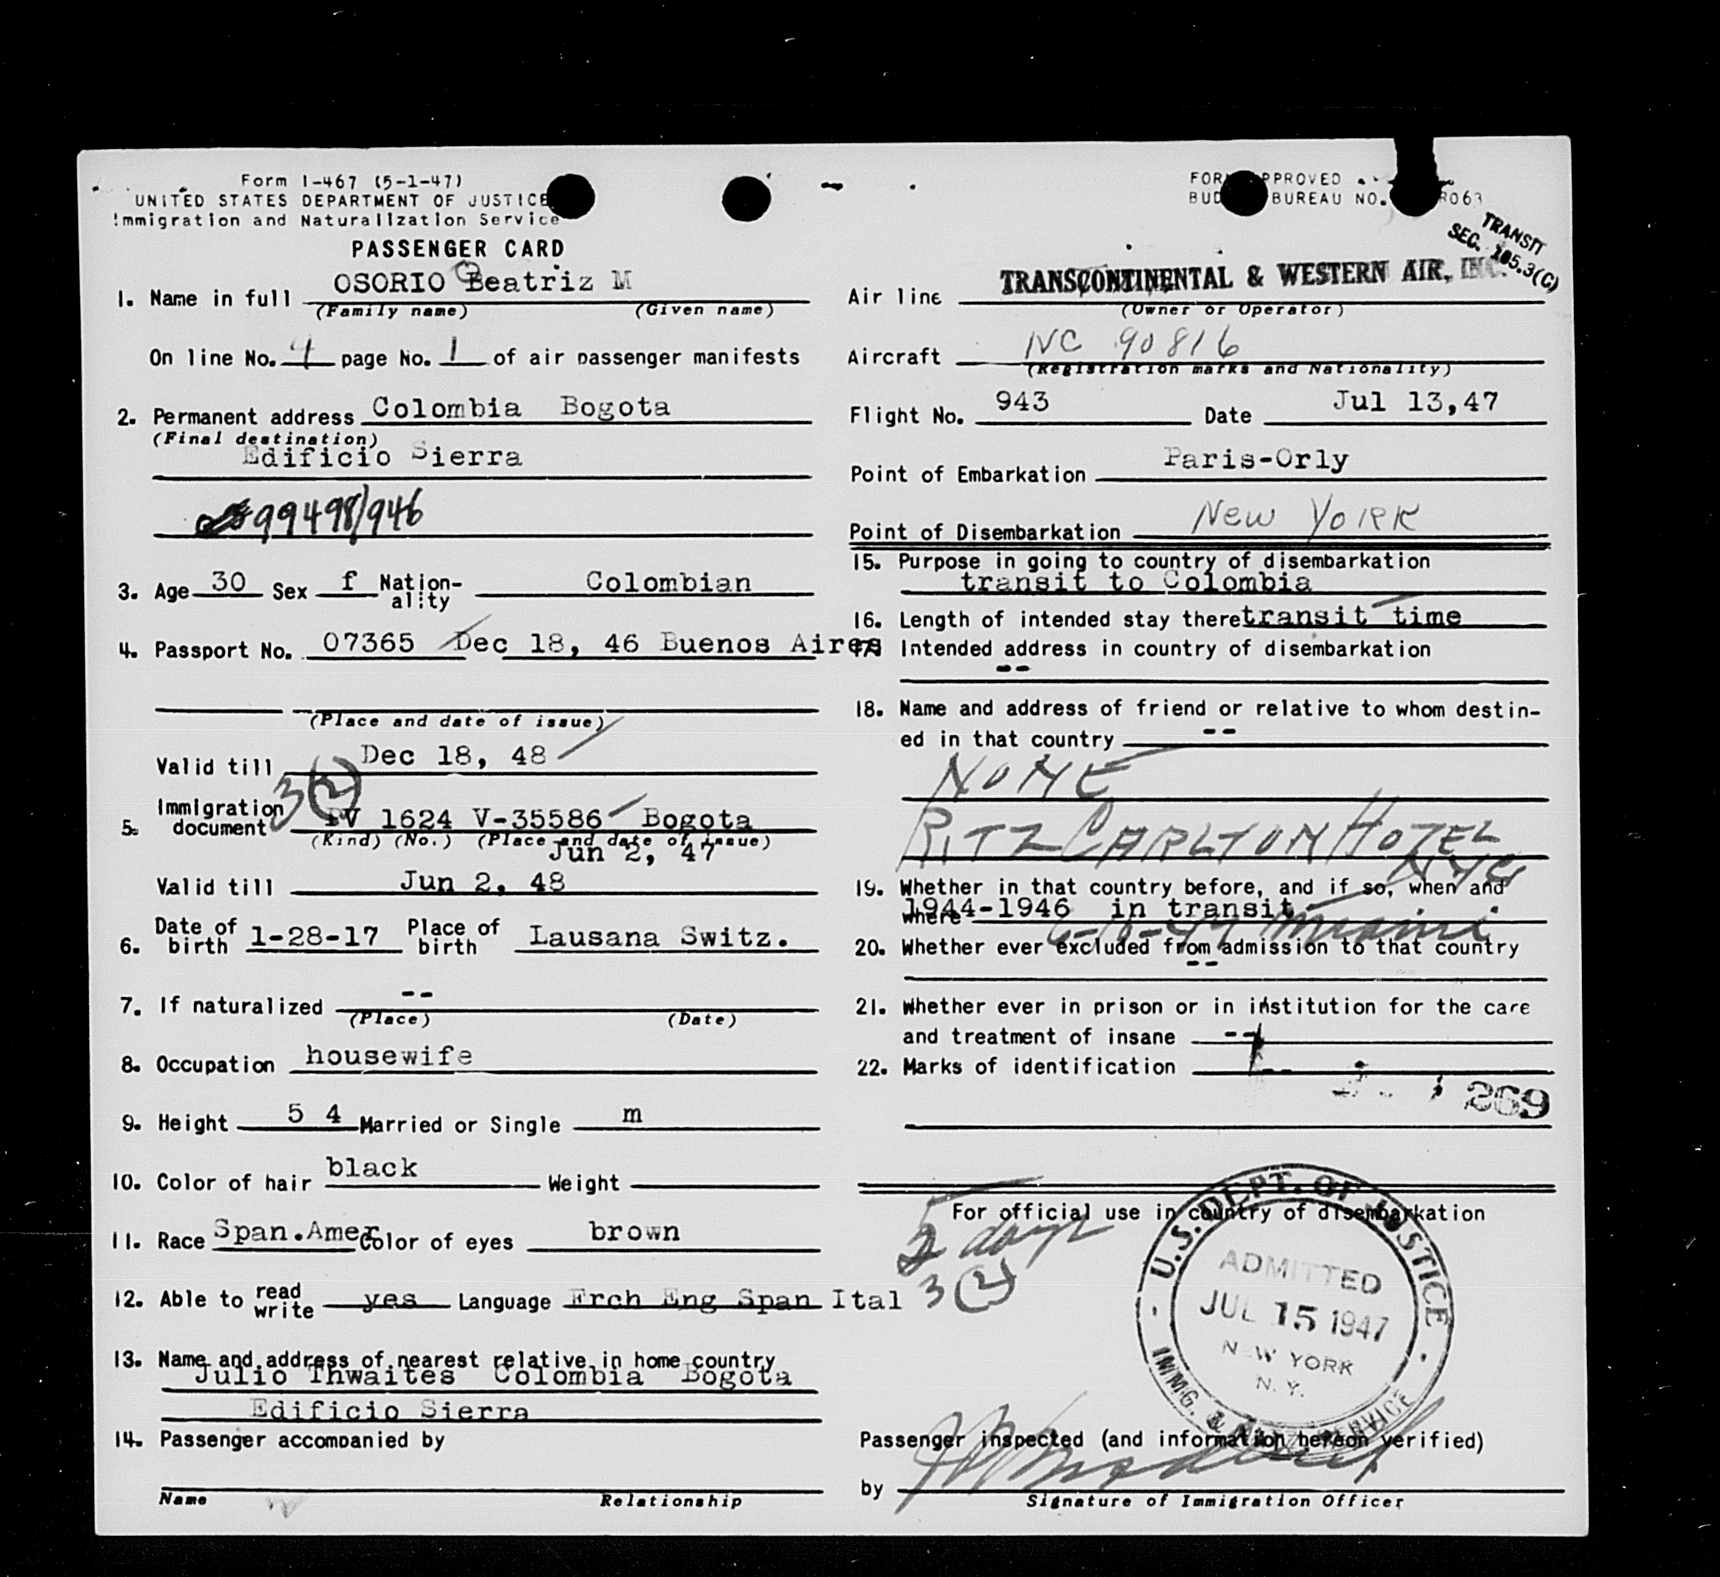 Form I-467 (5-1-47)
UNITED STATES DEPARTMENT OF JUSTICE
Immigration and Naturalization Service
PASSENGER CARD
1. Name in full OSORIO Beatriz M
(Family name) (Given name)
On line No. 4 page No. 1 of air passenger manifests
2. Permanent address Colombia Bogota
(Final destination)
Edificio Sierra
99498/946
3. Age 30 Sex f Nation-ality Colombian
4. Passport No. 07365 Dec 18, 46 Buenos Aires
(Place and date of issue)
Valid till Dec 18, 48
3 (2)
5. Immigration document PV 1624 V-35586 Bogota
(Kind) (No.) (Place and date of issue)
Jun 2, 47
Valid till Jun 2, 48
6. Date of birth 1-28-17 Place of birth Lausana Switz.
7. If naturalized --
(Place) (Date)
8. Occupation housewife
9. Height 5 4 Married or Single m
10. Color of hair black Weight
11. Race Span.Amer Color of eyes brown
12. Able to read write yes Language Frch Eng Span Ital
13. Name and address of nearest relative in home country
Julio Thwaites Colombia Bogota
Edificio Sierra
14. Passenger accompanied by
Name Relationship
FORM APPROVED
BUDGET BUREAU NO. R063
TRANSIT
SEC. 105.3(C)
Air line TRANSCONTINENTAL & WESTERN AIR, INC.
(Owner or Operator)
Aircraft NC 90816
(Registration marks and Nationality)
Flight No. 943 Date Jul 13,47
Point of Embarkation Paris-Orly
Point of Disembarkation New York
15. Purpose in going to country of disembarkation
transit to Colombia
16. Length of intended stay there transit time
17. Intended address in country of disembarkation
--
18. Name and address of friend or relative to whom destin-
ed in that country --
NONE
RITZ CARLTON HOTEL
NYC
19. Whether in that country before, and if so, when and
where 1944-1946 in transit
Miami
20. Whether ever excluded from admission to that country
--
21. Whether ever in prison or in institution for the care
and treatment of insane --
22. Marks of identification --
269
For official use in country of disembarkation
5 days
3 (2)
U.S. DEPT. OF JUSTICE
ADMITTED
JUL 15 1947
NEW YORK
N. Y.
IMMG. & NATZ. SERVICE
Passenger inspected (and information hereon verified)
by
Signature of Immigration Officer